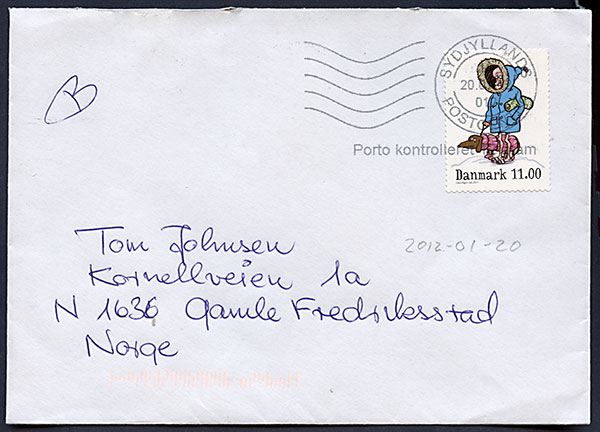 B
SYDJYLLANDS
20.
01
POSTC
Porto kontrolleret
am
Danmark 11.00
2012-01-20
Tom Johnsen
Kornellveien 1a
N 1636 Gamle Fredriksstad
Norge